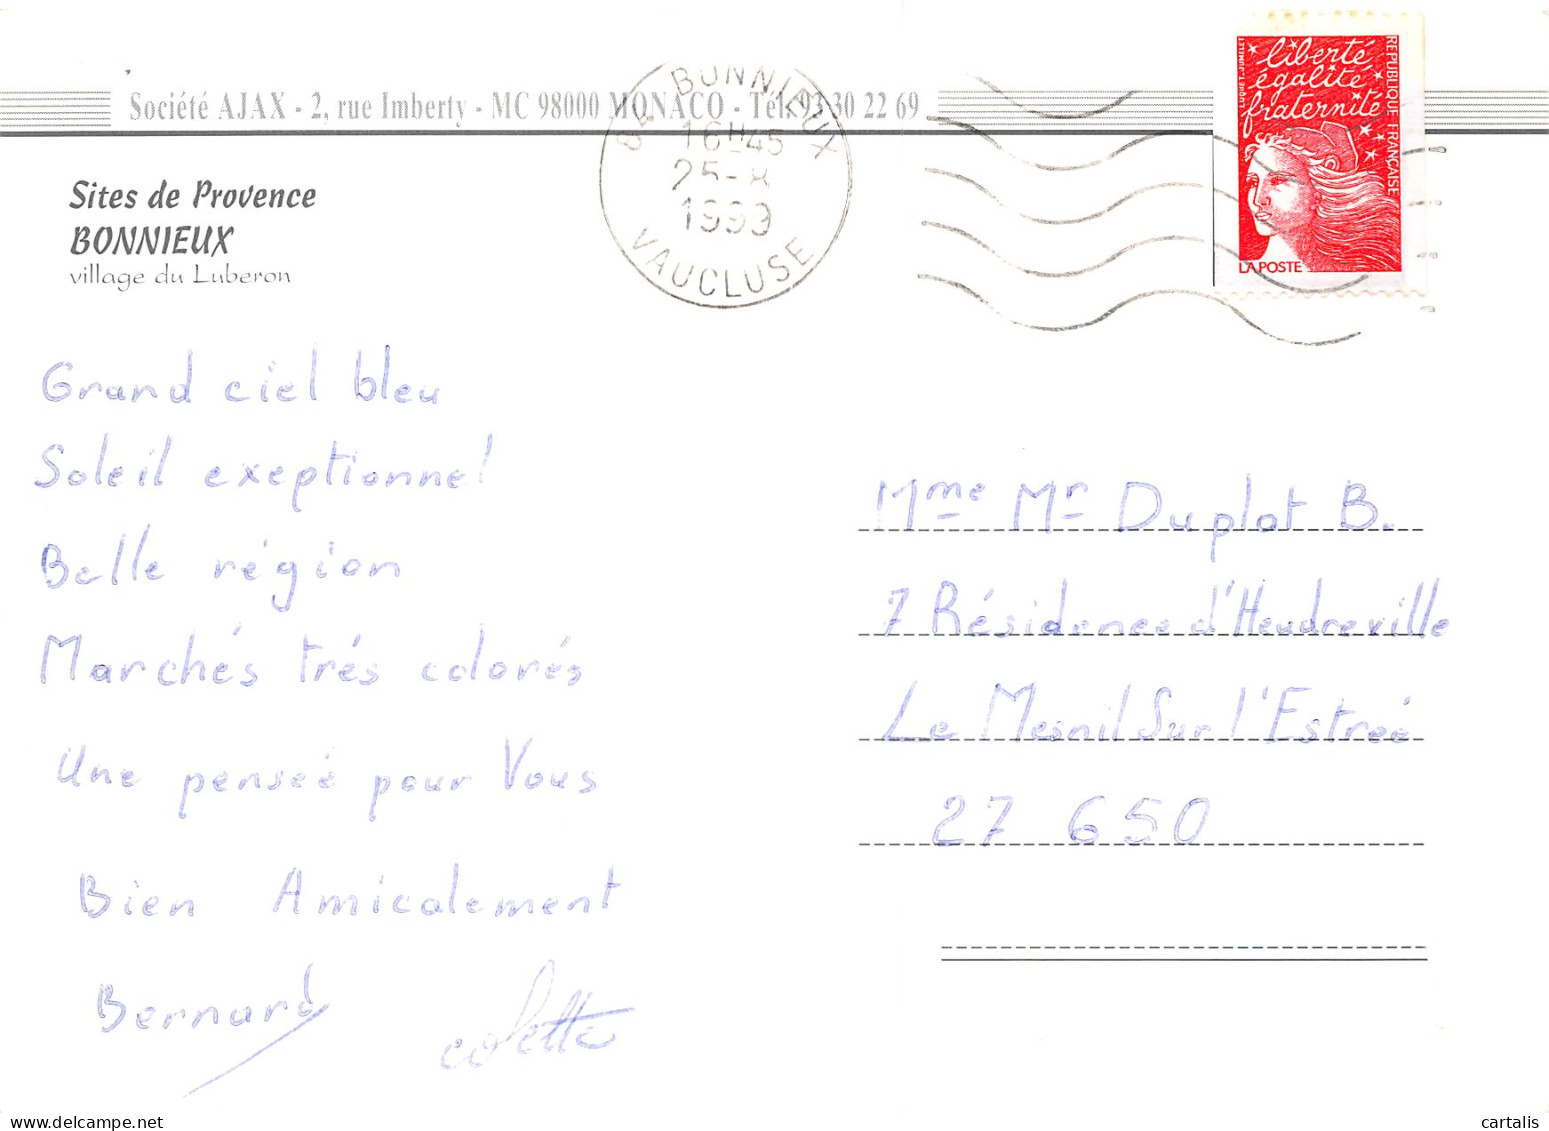 Société AJAX - 2, rue Imberty - MC 98000 MONACO - Tél. 93 30 22 69
84 BONNIEUX
16H45
25-8
1999
VAUCLUSE
liberté
égalité
fraternité
REPUBLIQUE FRANÇAISE
LA POSTE
Sites de Provence
BONNIEUX
village du Luberon
Grand ciel bleu
Soleil exeptionnel
Belle région
Marchés trés colorés
Une penseé pour Vous
Bien Amicalement
Bernard
Colette
Mme Mr Duplot B.
7 Résidence d'Heudreville
Le Mesnil Sur l'Estreé
27 650
cartalis